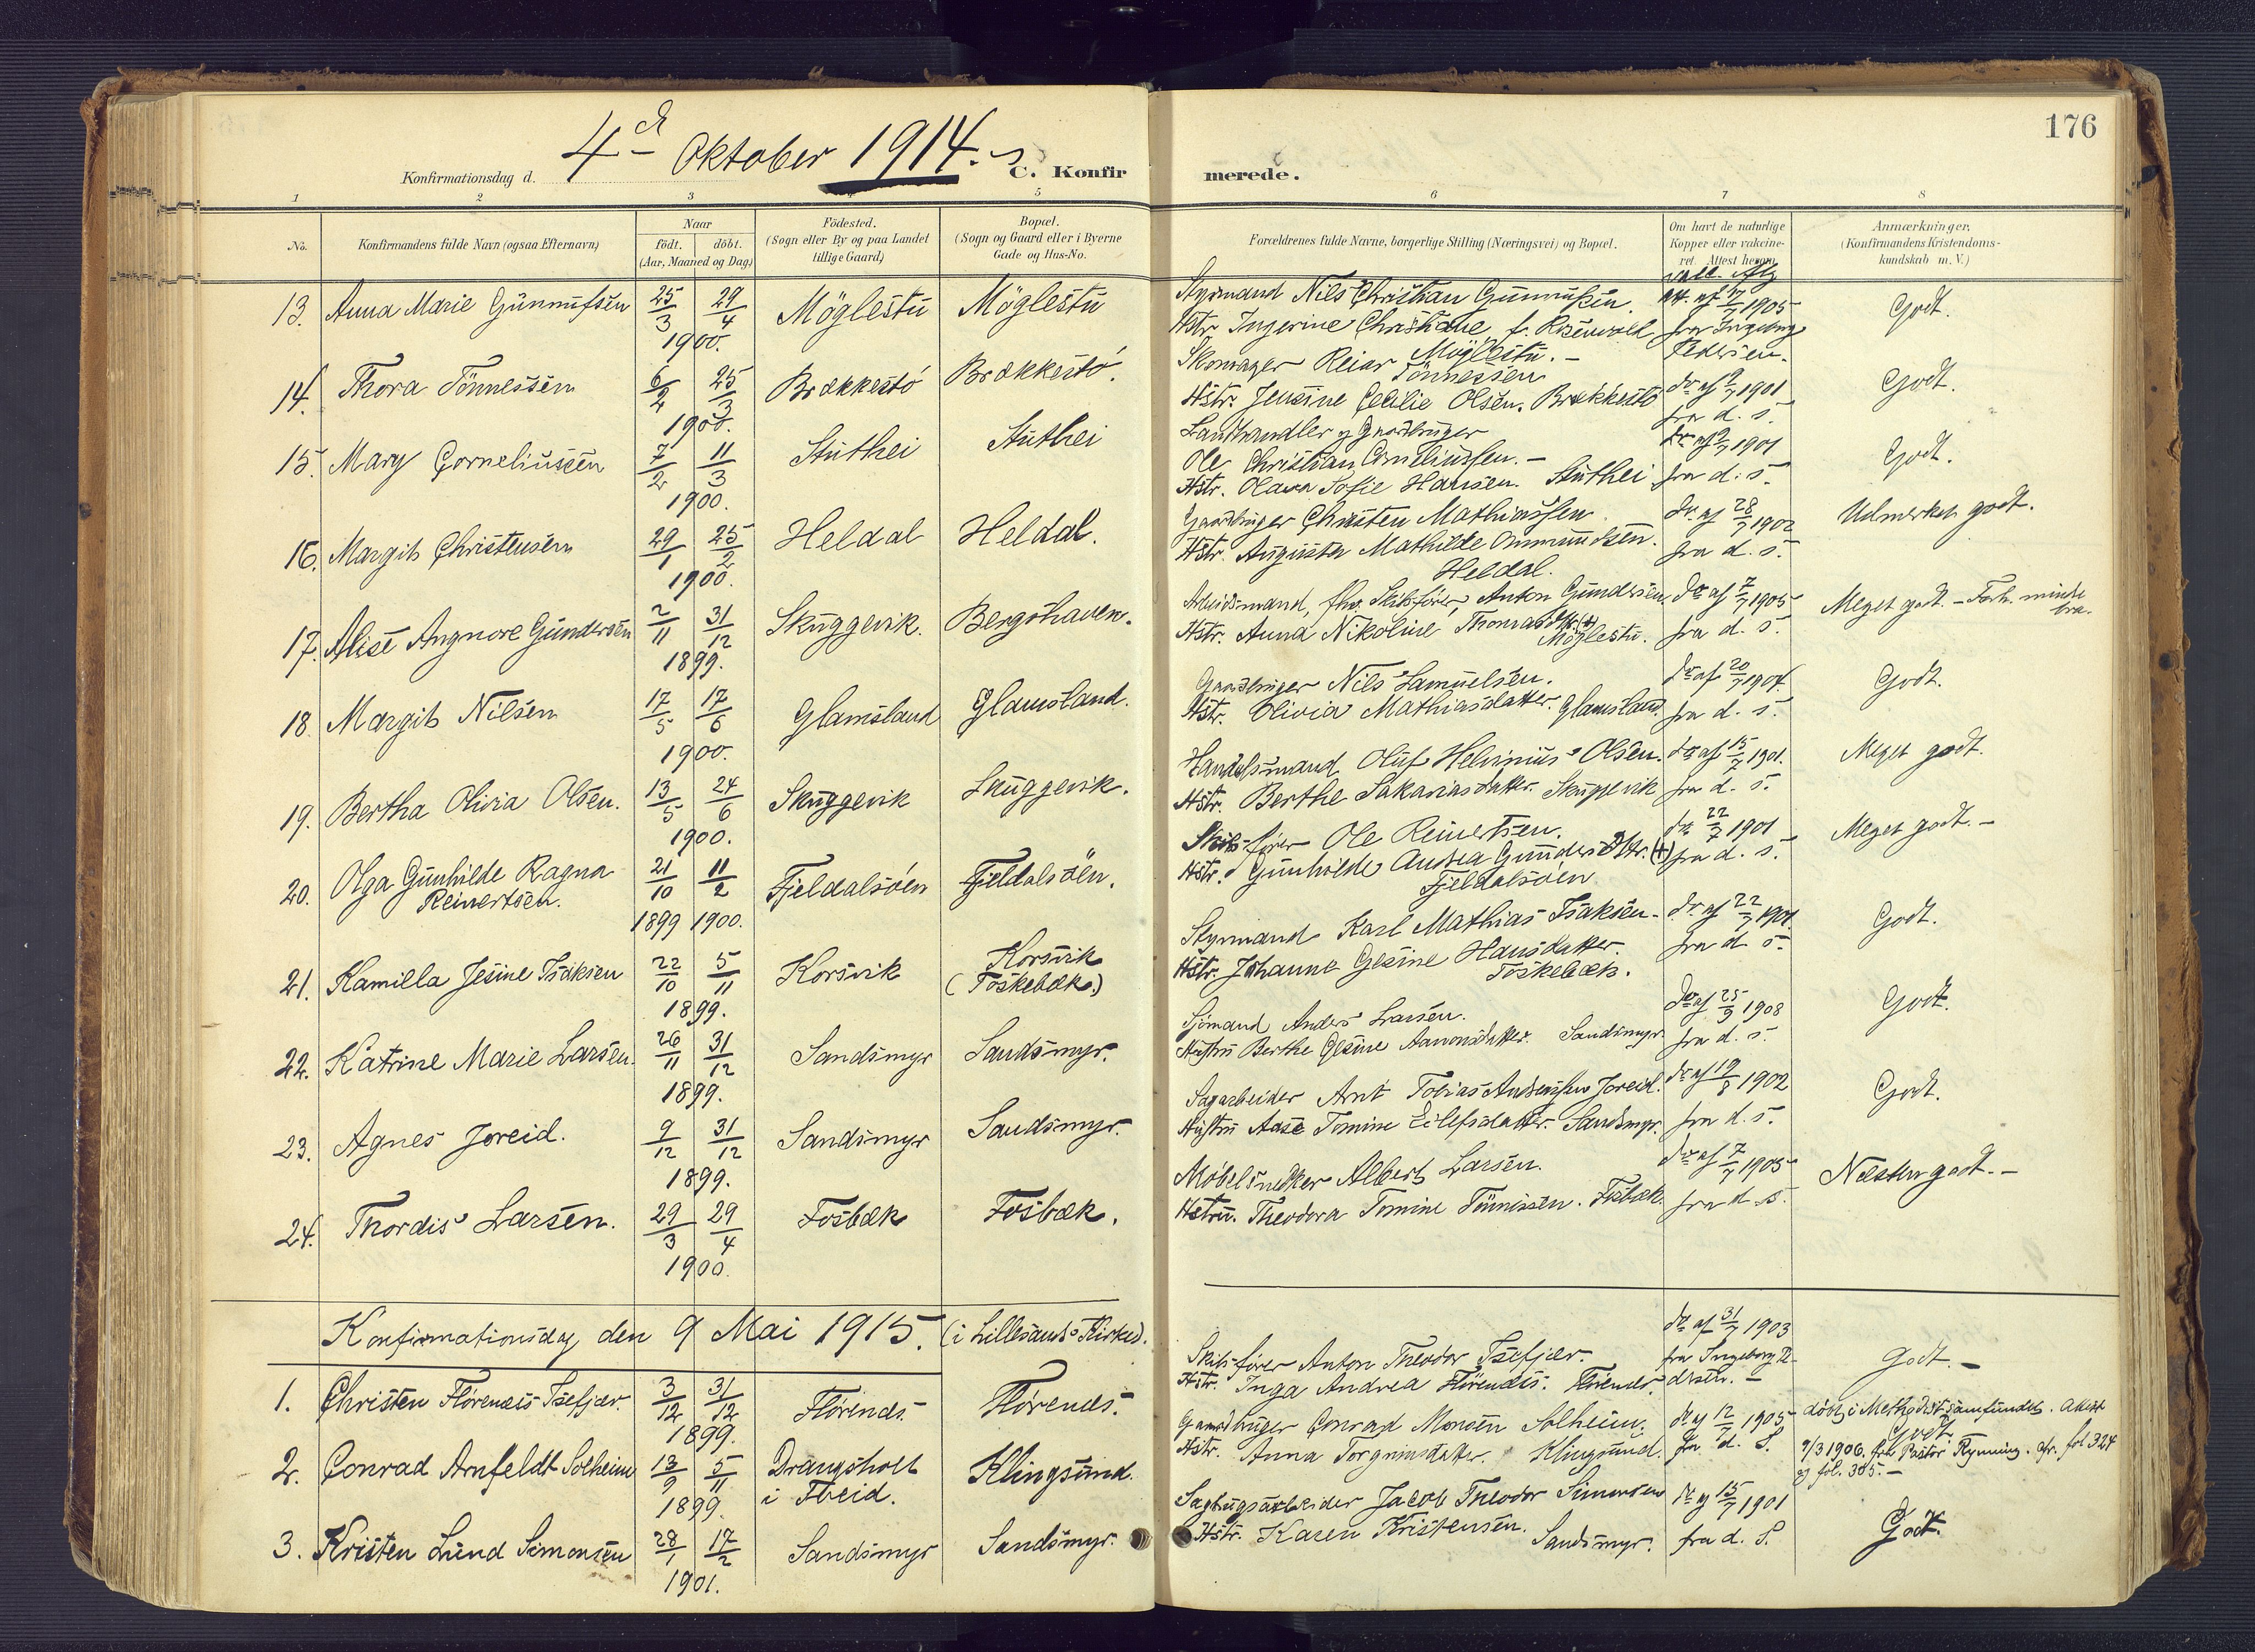 176
4de Oktober 1914.
Konfirmationsdag d.
C. Konfir
merede.
1 2 3 5 6 7 8
No.
Konfirmandens fulde Navn (ogsaa Efternavn)
Naar
födt. döbt.
(Aar, Maaned og Dag)
Födested.
(Sogn eller By og paa Landet
tillige Gaard)
Bopæl.
(Sogn og Gaard eller i Byerne
Gade og Hus-No.
Forældrenes fulde Navne, borgerlige Stilling (Næringsvei) og Bopæl.
Om havt de naturlige
Kopper eller vakcine-
ret. Attest herom
Anmærkninger,
(Konfirmandens Kristendoms-
kundskab m. V.)
13. Anna Marie Gunnufsen 25/3 29/4 1900. Möglestu Möglestu
Styrmand Nils Christian Gunnufsen.
Hstr Ingerine Christiane f. Rosenvold
Möglestu. -
1905
fra Ingeborg
Pedersen.
Godt.
14. Thora Tönnessen 6/2 25/3 1900. Brækkestö Brækkestö.
Skomager Reiar Tönnessen
Hstr. Jensine Cecilie Olsen. Brækkestö
do af 9/7 1901
fra d. s.
Godt.
15. Mary Corneliussen 7/2 11/3 1900. Stuthei Stuthei
Landhandler og Gaardbruger
Ole Christian Corneliussen. -
Hstr. Olava Sofie Hansen. Stuthei
do af 9/7 1901
fra d. s.
Godt.
16. Margit Christensen 29/1 25/2 1900. Heldal Heldal.
Gaardbruger Christen Mathiassen
Hstr. Augusta Mathilde Ommundsen.
Heldal.
do af 28/7 1902
fra d. s.
Udmerket godt.
17. Alise Angnore Gundersen 2/11 31/12 1899. Skuggevik. Bergshaven.
Arbeidsmand, fhv. Skibsfører, Anton Gundersen.
Hstr. Anna Nikoline Thomasdtr. (+)
Möglestu.
do af 7/7 1905
fra d. s.
Meget godt. - Forh. mindre
bra.
18. Margit Nilsen 17/5 17/6 1900. Glamsland Glamsland.
Gaardbruger Nils Samuelsen.
Hstr. Olivia Mathiasdatter. Glamsland.
do af 20/7 1904.
fra d. s.
Godt.
19. Bertha Olivia Olsen. 13/5 24/6 1900. Skuggevik Skuggevik.
Handelsmand Oluf Helvinius Olsen.
Hstr. Berthe Sakariasdatter. Skuggevik
do af 15/7 1901.
fra d. s.
Meget godt.
20. Olga Gunhilde Ragna
Reinertsen. 21/10 11/2 1899 1900. Fjeldalsöen Fjeldalsöen.
Skibsfører Ole Reinertsen.
Hstr. Gunhilde Andrea Gundersdtr. (+)
Fjeldalsöen
do 22/7 1901
fra d. s.
Meget godt. -
21. Kamilla Jesine Isaksen 22/10 5/11 1899. Korsvik Korsvik
(Toskebæk.)
Styrmand Karl Mathias Isaksen.
Hstr. Johanne Gesine Hansdatter.
Toskebæk.
do af 22/7 1901
fra d. s.
Godt.
22. Katrine Marie Larsen. 26/11 31/12 1899. Sandsmyr Sandsmyr.
Sjömand Anders Larsen.
Hustru Berthe Gesine Aanonsdatter. Sandsmyr.
do af 25/9 1908
fra d. s.
Godt.
23. Agnes Joreid. 9/12 31/12 1899. Sandsmyr Sandsmyr.
Sagarbeider Arnt Tobias Andreassen Joreid.
Hustru Aase Tomine Eilefsdatter. Sandsmyr.
do af 19/8 1902
fra d. s.
Godt.
24. Thordis Larsen. 29/3 29/4 1900. Fosbæk Fosbæk.
Møbelsnedker Albert Larsen.
Hstru. Theodora Tomine Tönnissen. Fosbæk.
do af 7/7 1905
fra d. s.
Næsten godt. -
Konfirmationsdag den 9 Mai 1915. (i Lillesands Kirke).
1. Christen Flörenæs Isefjær. 3/12 31/12 1899. Flörenæs Flörenæs.
Skibsfører Anton Theodor Isefjær.
Hstr. Inga Andrea Flörenæs. Flörenæs.
do af 31/7 1903
fra Ingeborg Pe-
dersen. -
Godt. -
2. Conrad Arnfeldt Solheim 13/9 5/11 1899. Drangsholt
i Tveid. Klingsund.
Gaardbruger Conrad Monsen Solheim.
Hstr. Anna Torgrimsdatter. Klingsund.
do af 12/7 1905
fra d. S.
döbt i Methodistsamfundet. Attest
Godt.
9/3 1906. fra Pastor Rynning. cfr. fol 324
og fol. 305. -
3. Kristen Lund Simonsen 28/1 17/2 1901. Sandsmyr Sandsmyr.
Sagbugsarbeider Jacob Theodor Simonsen
Hstr. Karen Kristensen. Sandsmyr.
do af 15/7 1901
fra d. S.
Godt.